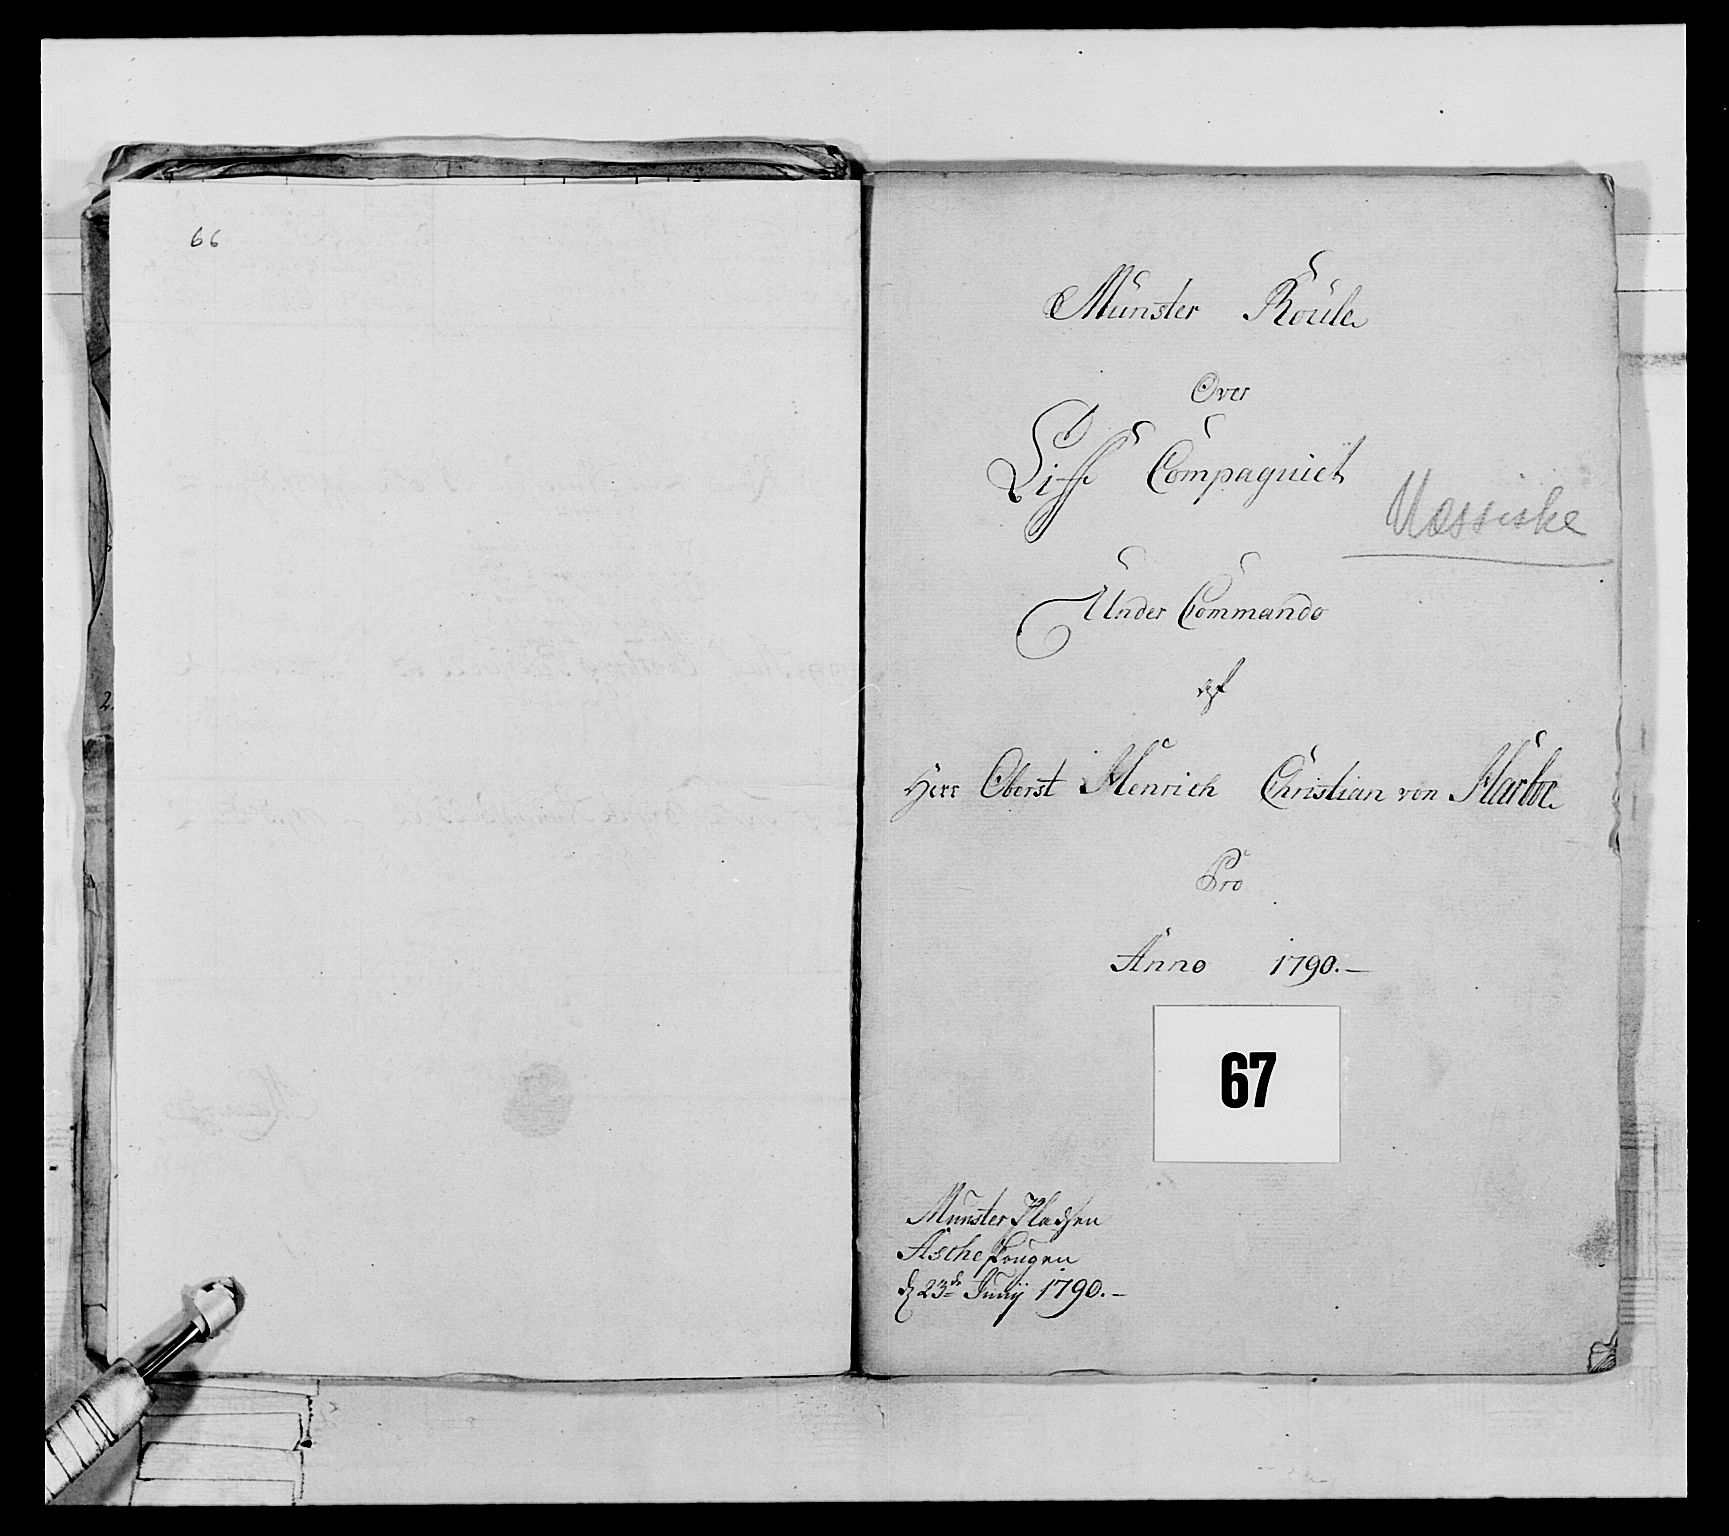 66
Münster Roule
Over
Liffs Compagniet
Næssiske
Under Commando
af
Herr Oberst Henrich Christian von Harboe
Pro
Anno 1790.—
67
Münster Pladsen
Asche Hougen
d 23de Junij 1790.—